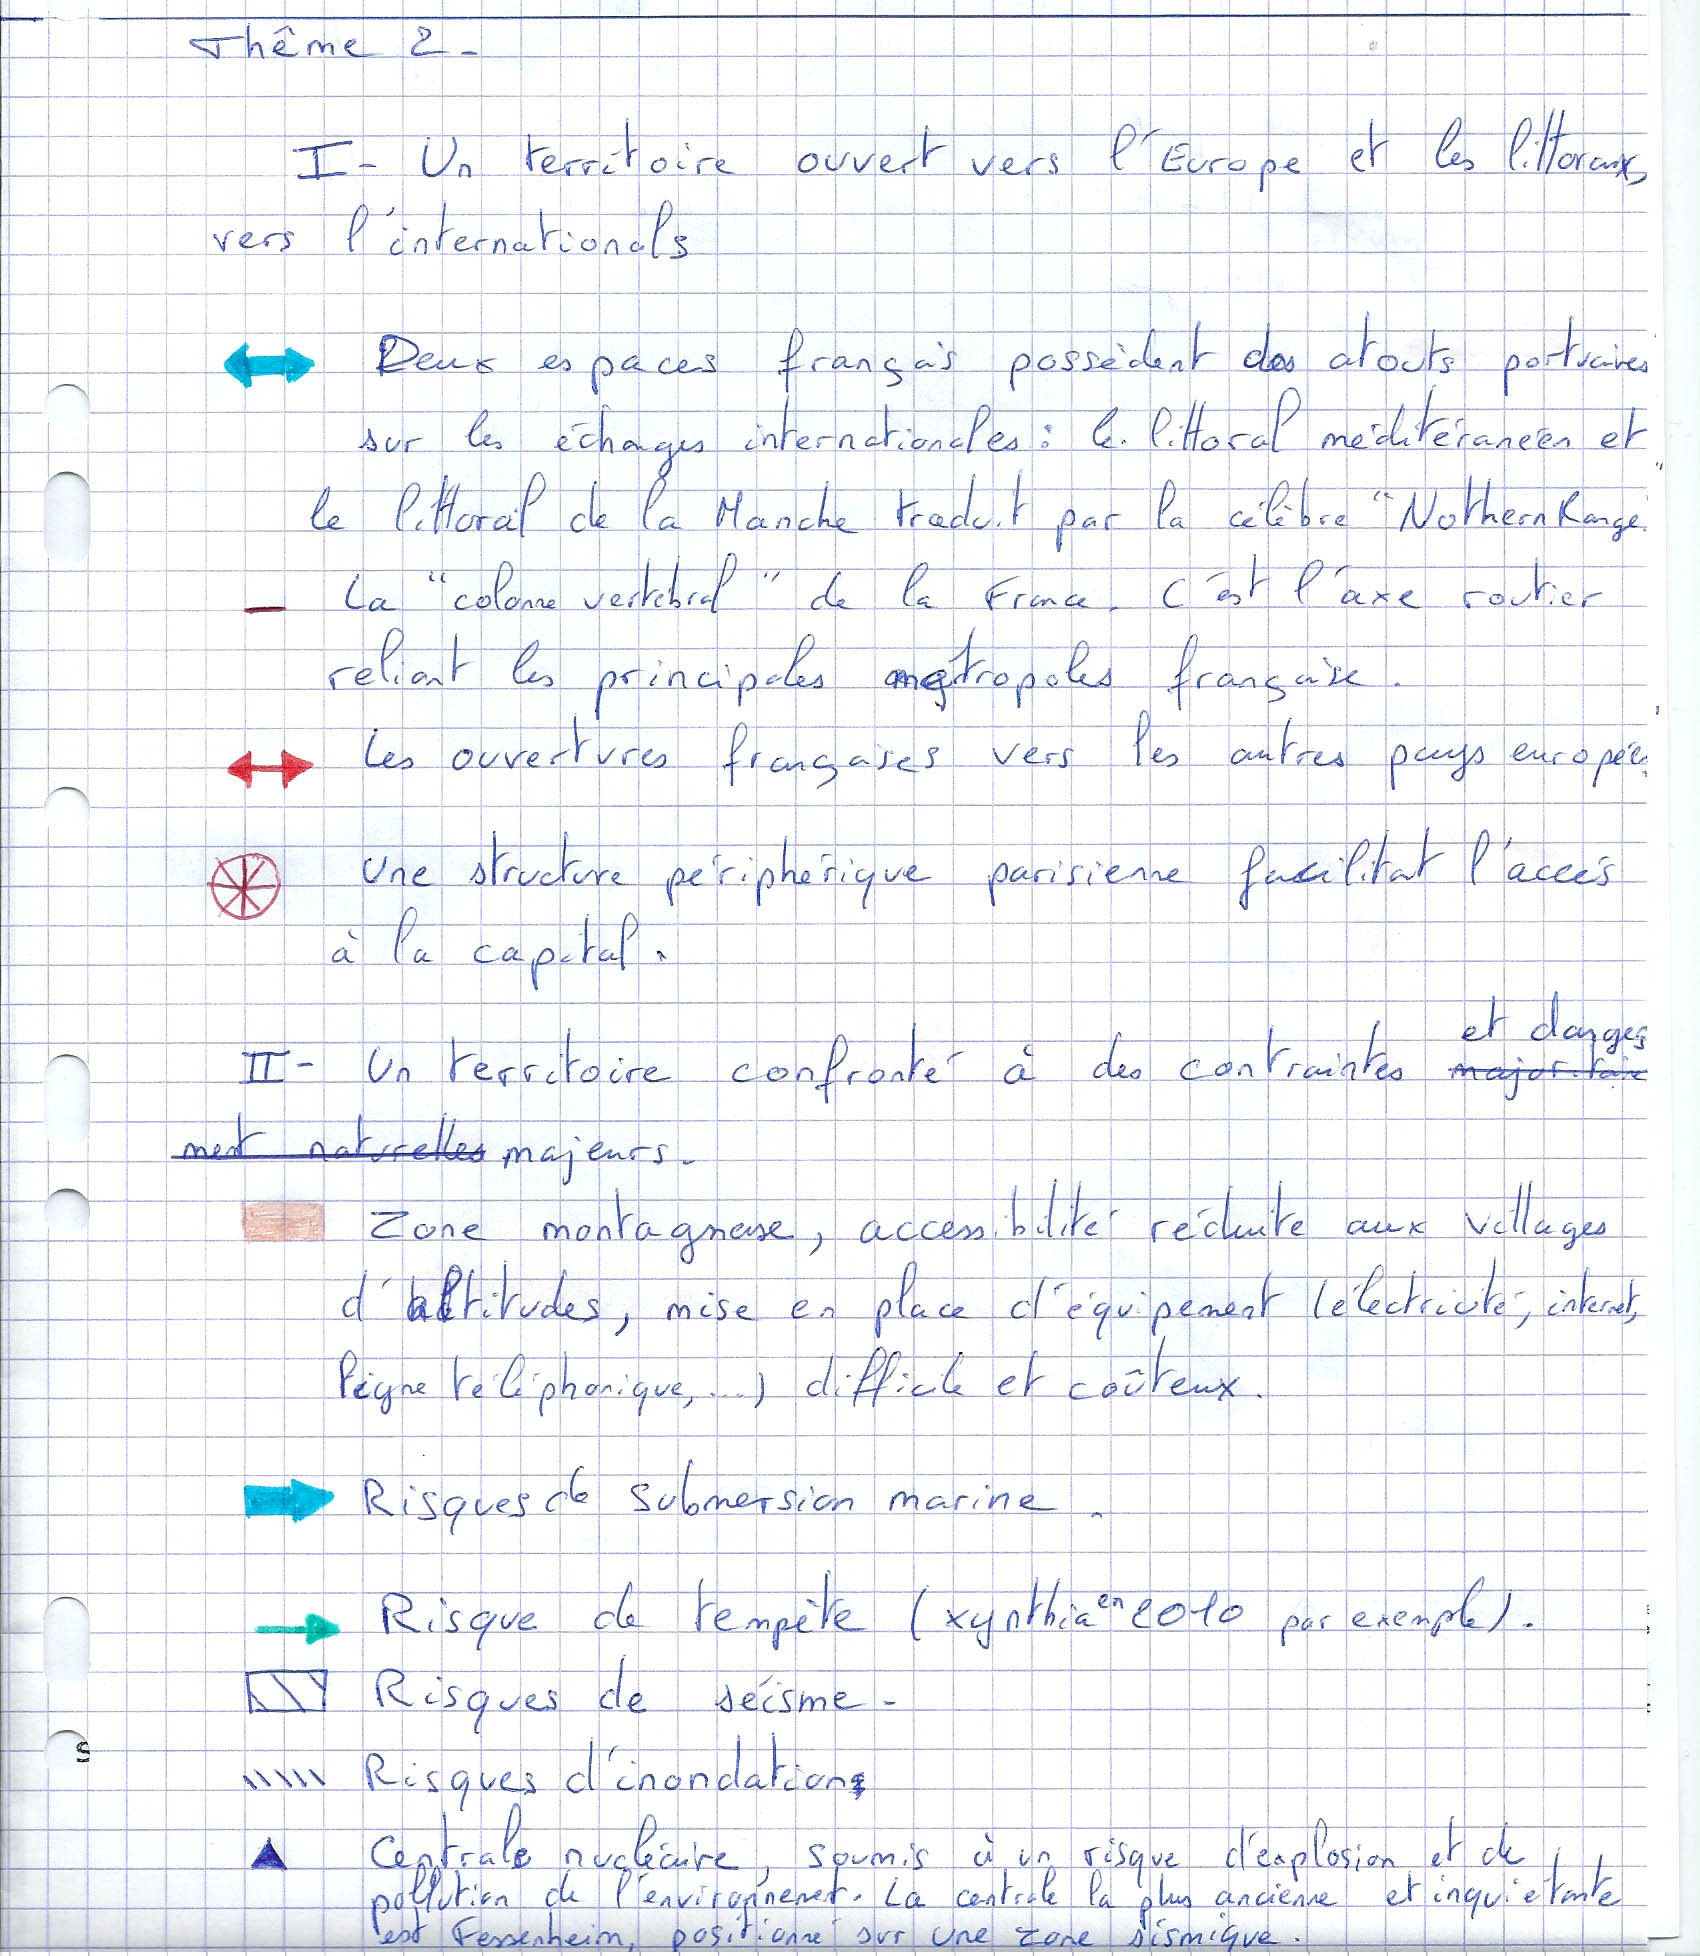 Thême 2-
I- Un territoire ouvert vers l'Europe et les littoraux,
vers l'internationals
Deux espaces français possèdent des atouts portuaires
sur les échanges internationales : le littoral méditéranéen et
le littoral de la Manche traduit par la célèbre "Nothern Range"
La "colonne vertébral" de la France. C'est l'axe routier
reliant les principales métropoles française.
Les ouvertures françaises vers les autres pays
Une structure périphérique parisienne facilitat l'accés
à la capital.
et dangers
II- Un territoire confronté à des contraintes majoritaire
ment naturelles majeurs.
Zone montagneuse, accessibilité réduite aux villages
d'altitudes, mise en place d'équipement (électricité, internet,
ligne téléphonique, ...) difficile et coûteux.
Risques de submersion marine.
Risque de tempête (xynthia en 2010 par exemple).
Risques de séisme-
Risques d'inondations
Centrale nucléaire, soumis à un risque d'explosion et de
pollution de l'environnement. La centrale la plus ancienne et inquiétante
est Fessenheim, positionné sur une zone sismique.
s